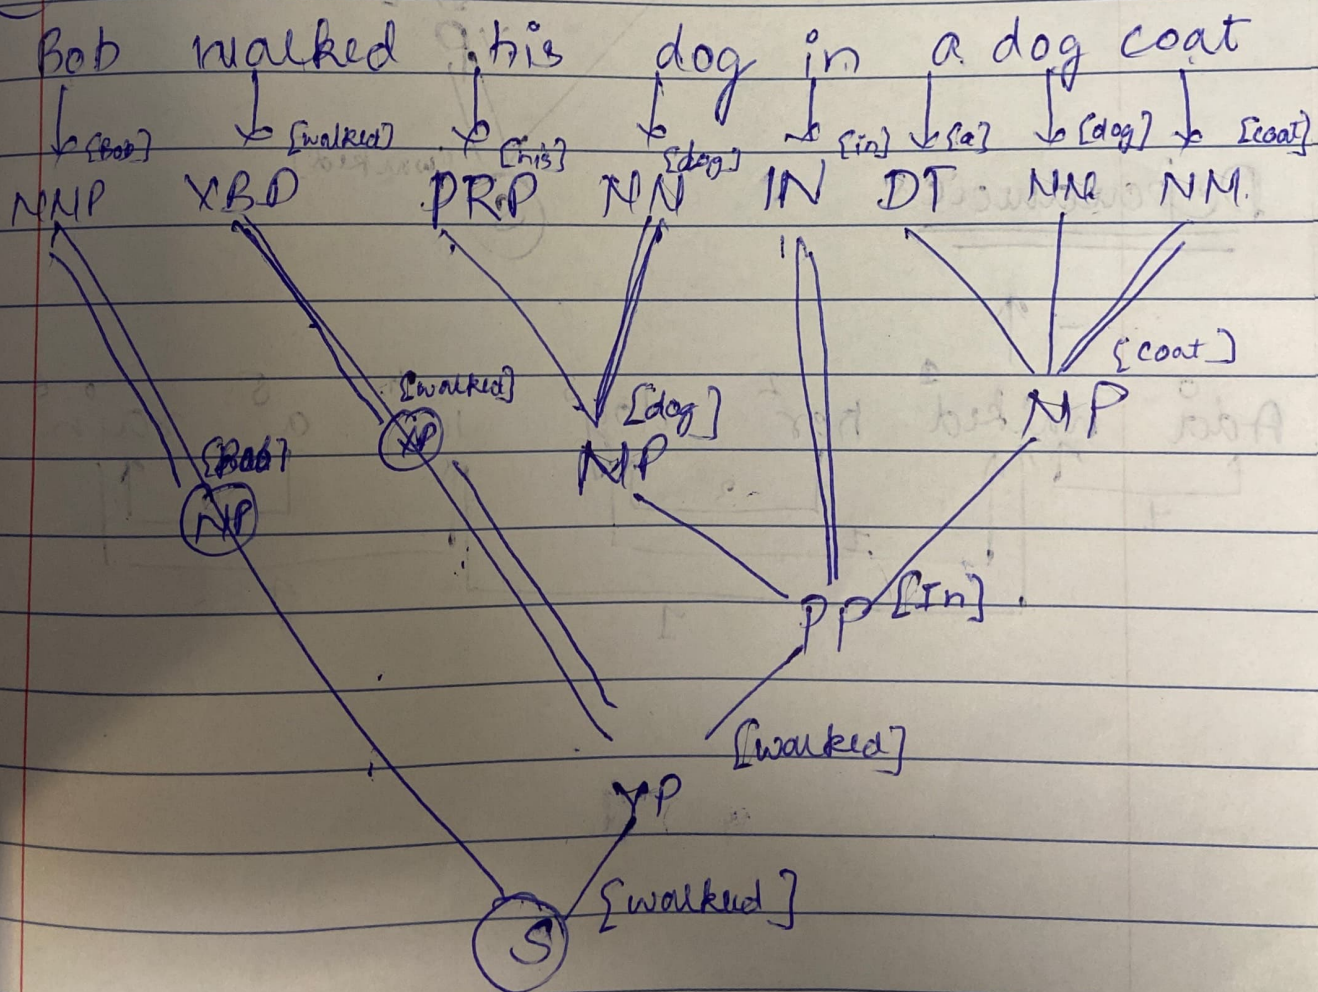 Bob walked his dog in a dog coat
[Bob] [walked] [his] [dog] [in] [a] [dog] [coat]
NNP VBD PRP NN IN DT NN NN
[coat]
[walked] [dog] NP
[Bob] VP NP
NP
PP [In]
[walked]
VP
[walked]
S